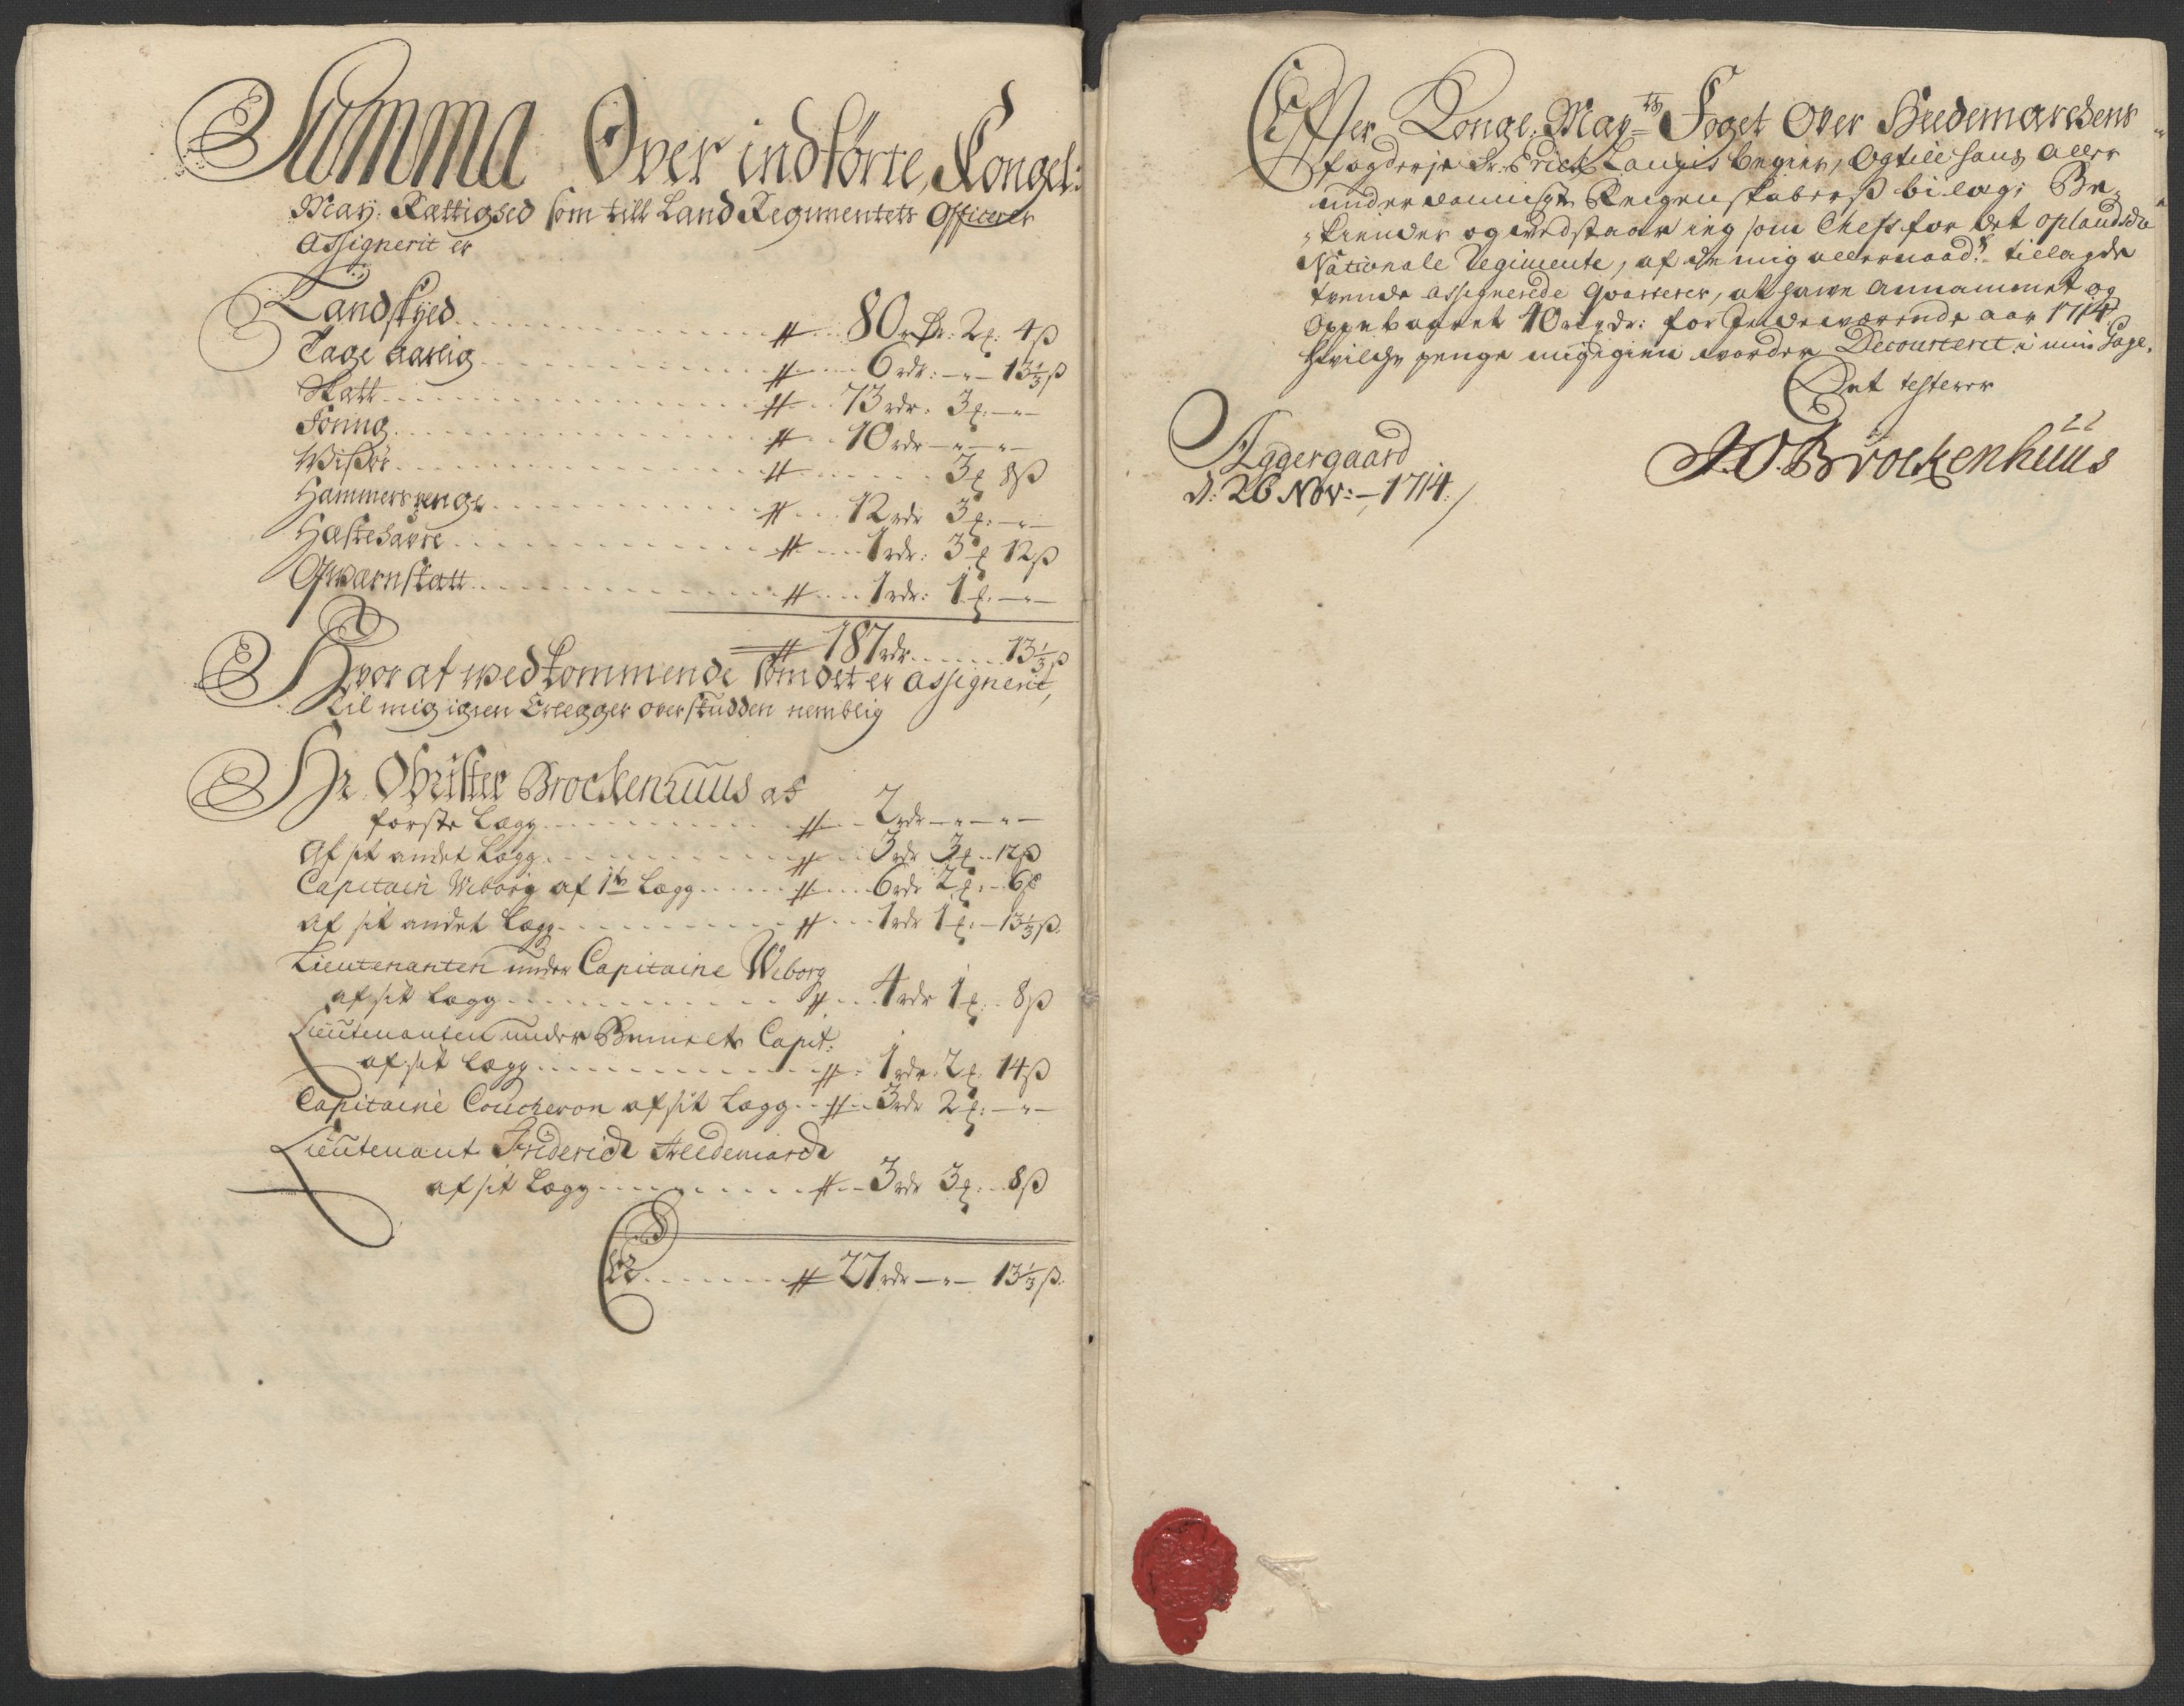 Summa Over indførte, Kongel:
May: Rettighed som till Land Regimentets Officerer
Assignerit er
Landskyed # 80 rdr: 2 ȷ: 4 ß
Tage aarlig # 6 rdr: — " — 13⅓ ß
Skatt # 73 rdr: 3 ȷ: — " —
Foring # 10 rdr — " — " —
Wißør # 3 ȷ 8 ß
Hammerspenge # 12 rdr 3 ȷ: — " —
Hæstehavre # 1 rdr: 3 ȷ 12 ß
Qwærnskatt # 1 rdr: 1 ȷ: — " —
# 187 rdr 13⅓ ß
Hvor af wedkommende som det er assignerit,
til mig igien Erlegger overskudden nemblig
Hr Obrister Brockenhuus af
første Lægg # 2 rdr — " — " —
Af sit andet Lægg # 3 rdr 3 ȷ 12 ß
Capitain Weborg af 1te Lægg # 6 rdr 2 ȷ: 6 ß
af sit andet Lægg # 1 rdr 1 ȷ: 13⅓ ß
Lieutenanten under Capitaine Weborg
af sit Lægg # 4 rdr 1 ȷ: 8 ß
Lieutenanten under Bemelte Capit:
af sit Lægg # 1 rdr: 2 ȷ: 14 ß
Capitaine Coucheron af sit Lægg # 3 rdr 2 ȷ: — " —
Lieutenant Friderich Heedemarck
af sit Lægg # 3 rdr 3 ȷ: 8 ß
Er # 27 rdr — " — 13⅓ ß
Efter Kongl: May:ts Foget Over Heedemarckens
fogderje Sr. Erich Langis begier, Og till hans aller
underdanigste Reigenskaberß bilag; Be-
kiender og wedstaar ieg som Cheff for det oplandske
Nationale Regimente, af de mig allernaad:st tillagde
tvende assignerede Qvarterer, at have annammet og
Oppebaaret 40 rixdr: for Indeværende aar 1714.
hvilche penge mig igien vorder Decourteret i min Gage.
Det testerer
Aggergaard
d: 26 Nov: – 1714.
J.O. Brockenhuus